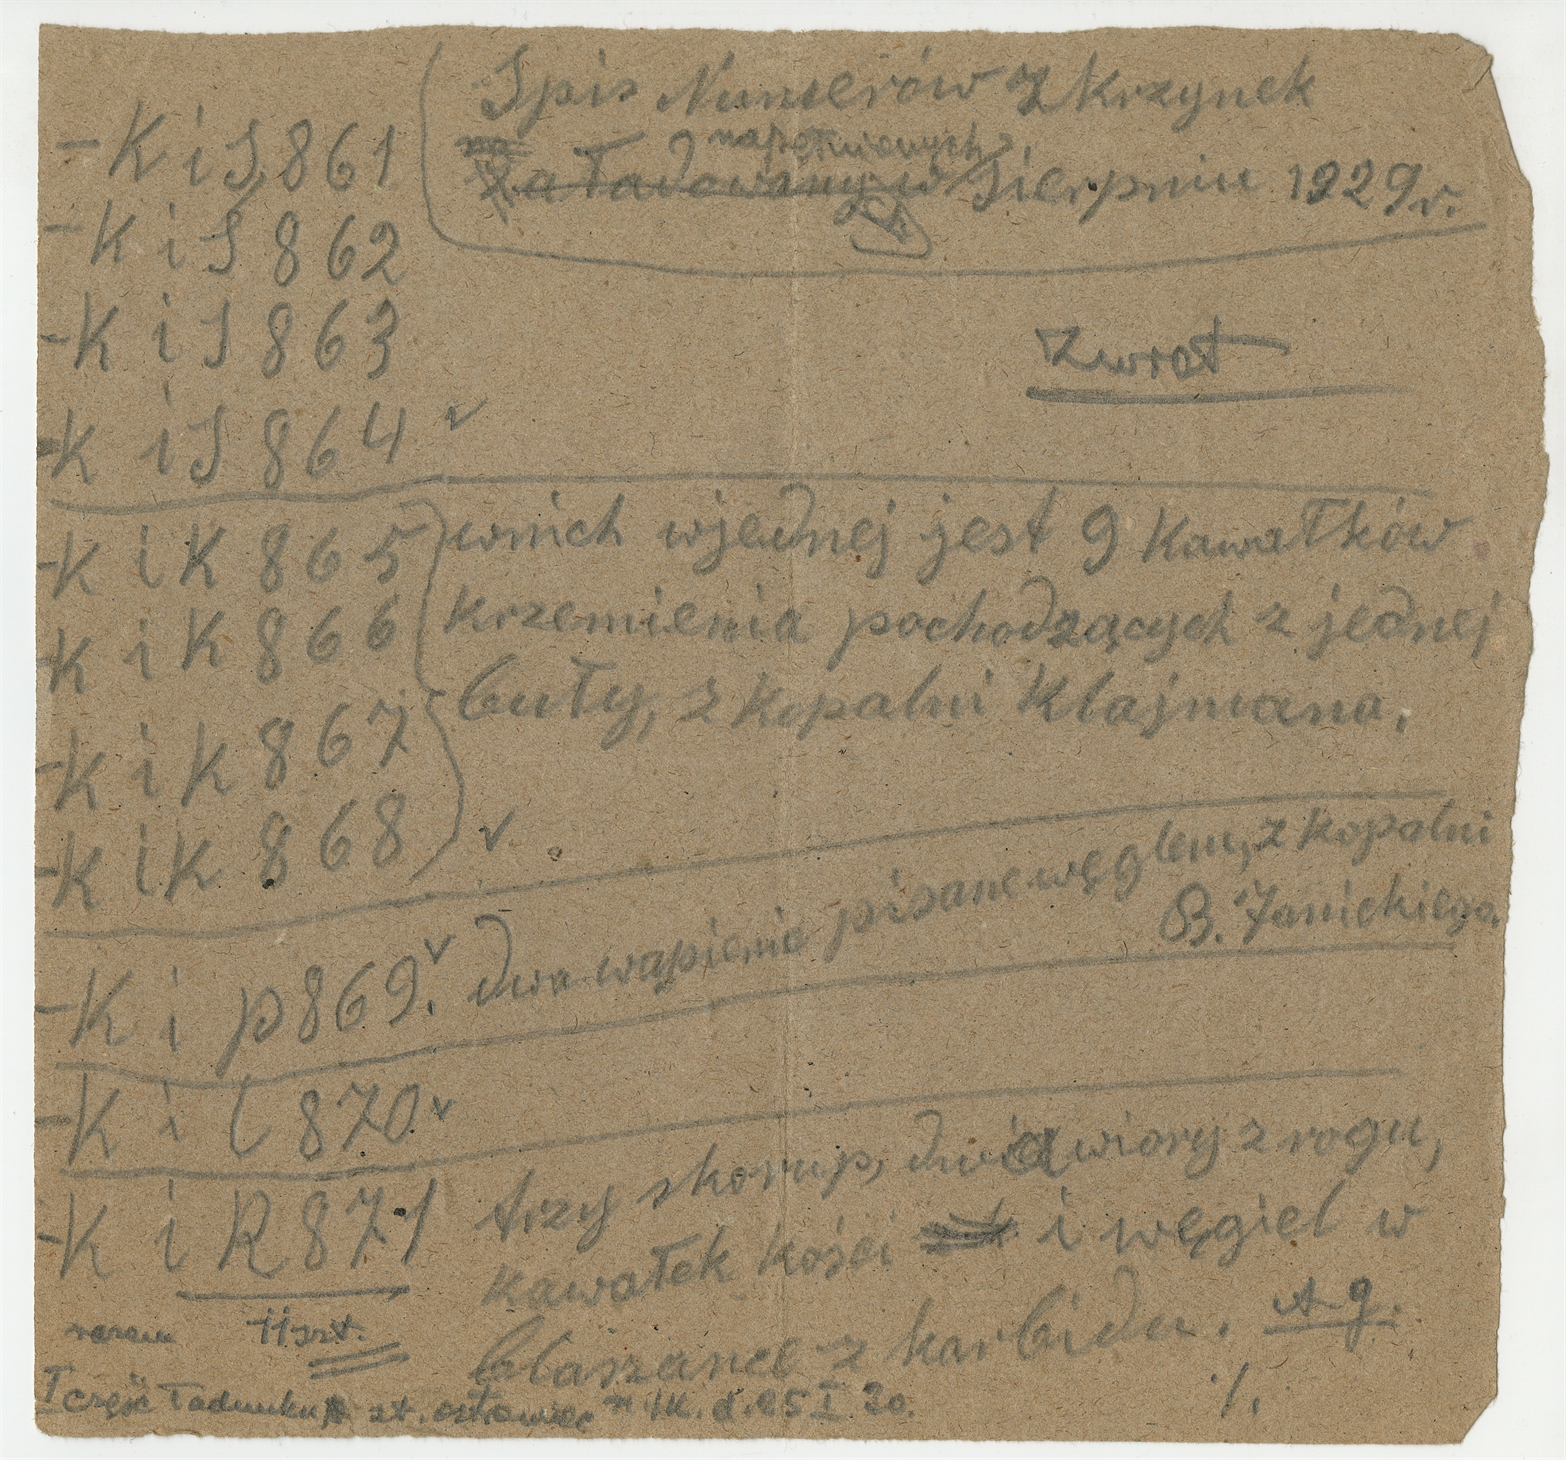 Spis Numerów z Krzynek
napełnionych
Załadowany w Sierpniu 1929 r.
- K i S 861
- K i S 862
- K i S 863
Zwrot
- K i S 864 v
- K i K 865
wnich wjednej jest 9 Kawałków
- K i K 866
krzemienia pochodzących z jednej
- K i K 867
buły, z kopalni Klajmana.
- K i K 868 v
- K i p 869. v dwa wapienie pisane węglem, z kopalni
B. Janickiego.
- K i L 870 v
- K i R 871
trzy skorup, dwa wiory z rogu,
kawałek kości i węgiel w
blaszance z karbidu.
razem 11 szt.
I część ładunku st. ostrowiec d. 25 I 30.
·/.